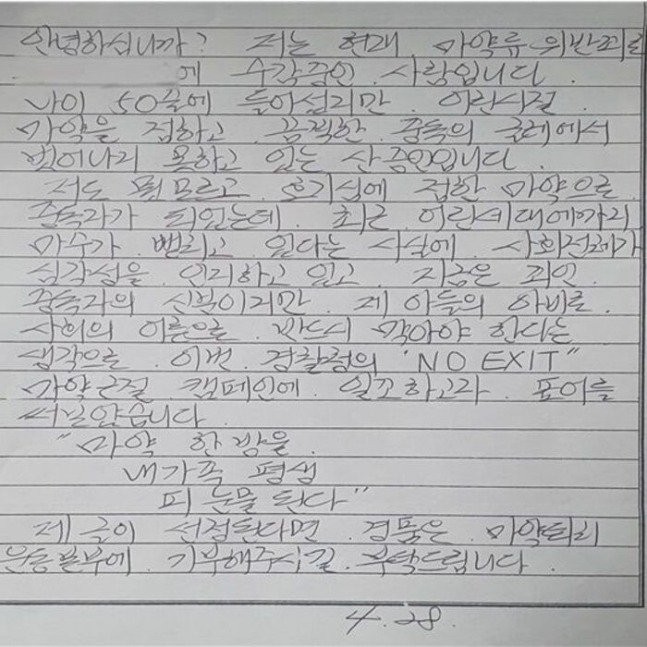 안녕하십니까? 저는 현재 마약류위반죄로
에 수감중인 사람입니다.
나이 50줄에 들어섰지만 어린시절
마약을 접하고 끔찍한 중독의 굴레에서
벗어나지 못하고 있는 산 증인입니다.
저도 뭣모르고 호기심에 접한 마약으로
중독자가 되었는데 최근 어린세대에까지
마수가 뻗치고 있다는 사실에 사회전체가
심각성을 인지하고 있고 지금은 죄인
중독자의 신분이지만 제 아들의 아비로
사회의 이름으로 반드시 막아야 한다는
생각으로 이번 경찰청의 'NO EXIT"
마약근절 캠페인에 일조하고자 표어를
써보았습니다.
"마약 한방울
내가족 평생
피눈물 된다"
제 글이 선정된다면 경품은 마약퇴치
운동본부에 기부해주시길 부탁드립니다.
4. 28.